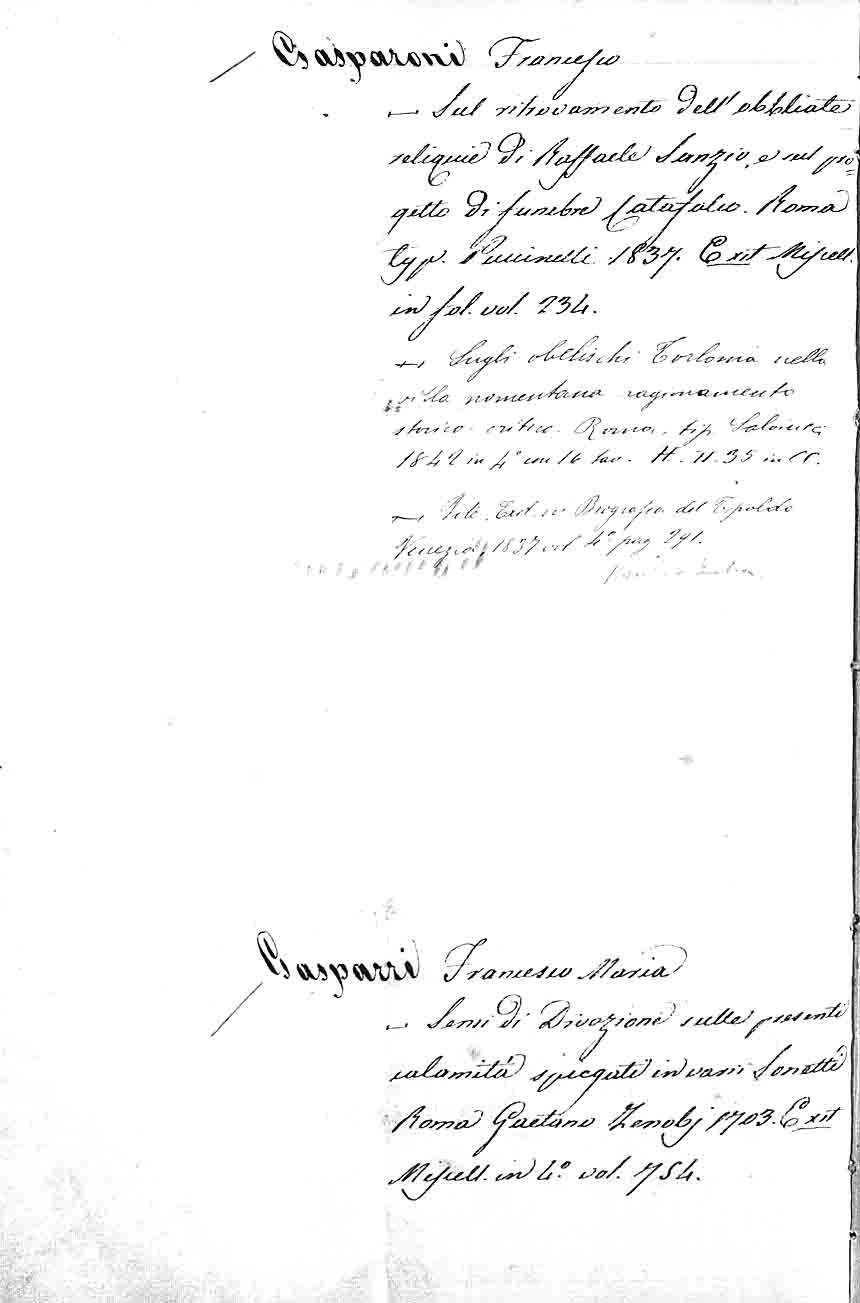 Gasparoni Francesco
— Sul ritrovamento dell'obbliate
reliquie di Raffaele Sanzio, e sul pro=
getto di funebre Catafalco. Roma
typ. Puccinelli 1837. Exit Miscell.
in fol. vol. 234.
— Sugli obelischi Torlonia nella
villa nomentana ragionamento
storico-critico. Roma. tip. Salviucci
1842 in 4° con 16 tav. H. II. 35 in CC.
— Vite. Exit. in Biografia del Tipaldo
Venezia, 1837 vol 4° pag 291.
Gasparri Francesco Maria
— Sensi di Divozione sulle presenti
calamità spiegati in varii Sonetti
Roma Gaetano Zenobj 1703. Exit
Miscell. in 4° vol. 754.